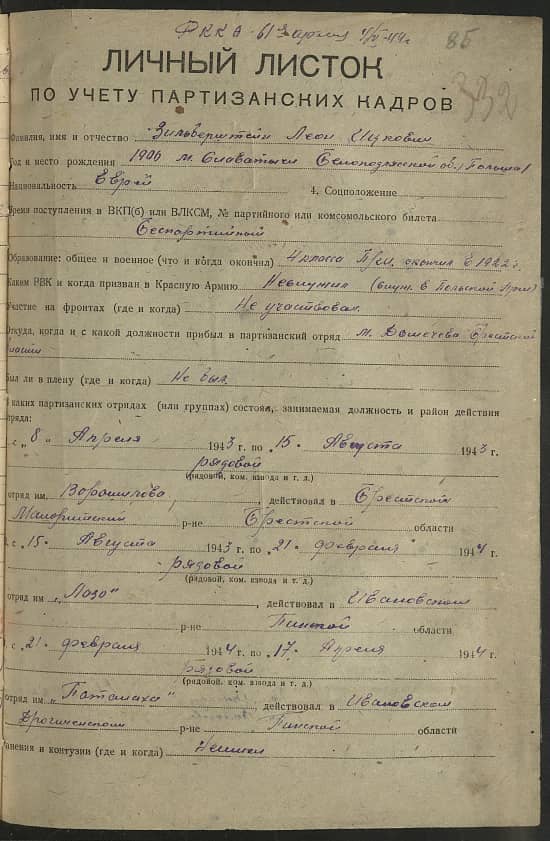 РККА - 61 армия 4/VI-44г
85
332
ЛИЧНЫЙ ЛИСТОК
ПО УЧЕТУ ПАРТИЗАНСКИХ КАДРОВ
Фамилия, имя и отчество Зильберштейн Леон Ицкович
Год и место рождения 1906 м. Славатычи Белоподлясской об. (Польша)
Национальность Еврей 4. Соцположение
Время поступления в ВКП(б) или ВЛКСМ, № партийного или комсомольского билета
Беспартийный
Образование: общее и военное (что и когда окончил) 4 класса окончил в 1922 г.
Каким РВК и когда призван в Красную Армию Невлужил в Польской Арм)
Участие на фронтах (где и когда) Не участвовал.
Откуда, когда и с какой должности прибыл в партизанский отряд м. Домачева Брестской
области
Был ли в плену (где и когда) Не был.
В каких партизанских отрядах (или группах) состоял, занимаемая должность и район действия
отряда:
с „8" Апреля 1943 г. по „15" Августа 1943 г.
рядовой
(рядовой, ком. взвода и т. д.)
отряд им. Ворошилова, действовал в Брестской
Малоритский р-не Брестской области
с „15" Августа 1943 г. по „21" февраля 1944 г.
рядовой
(рядовой, ком. взвода и т. д.)
отряд им „Лазо", действовал в Ивановском
р-не Пинской области
с „21" февраля 1944 г. по „17" Апреля 1944 г.
рядовой
(рядовой, ком. взвода и т. д.)
отряд им „Паталаха" действовал в Ивановском
Дрогиченском р-не Пинской области
Ранения и контузии (где и когда) Неимел